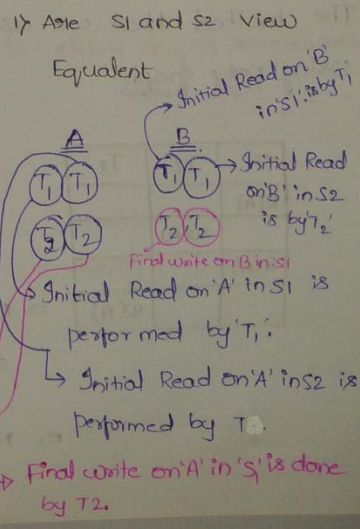 1) Are S1 and S2 View
Equalent
Initial Read on 'B'
in 'S1'. is by T1
A
B
T1 T1
T1 T1
Initial Read
on 'B' in S2
is by 'T2'
T2 T2
T2 T2
Final write on B in S1
Initial Read on 'A' in S1 is
performed by 'T1'.
Initial Read on 'A' in S2 is
performed by T
Final write on 'A' in 'S1' is done
by T2.